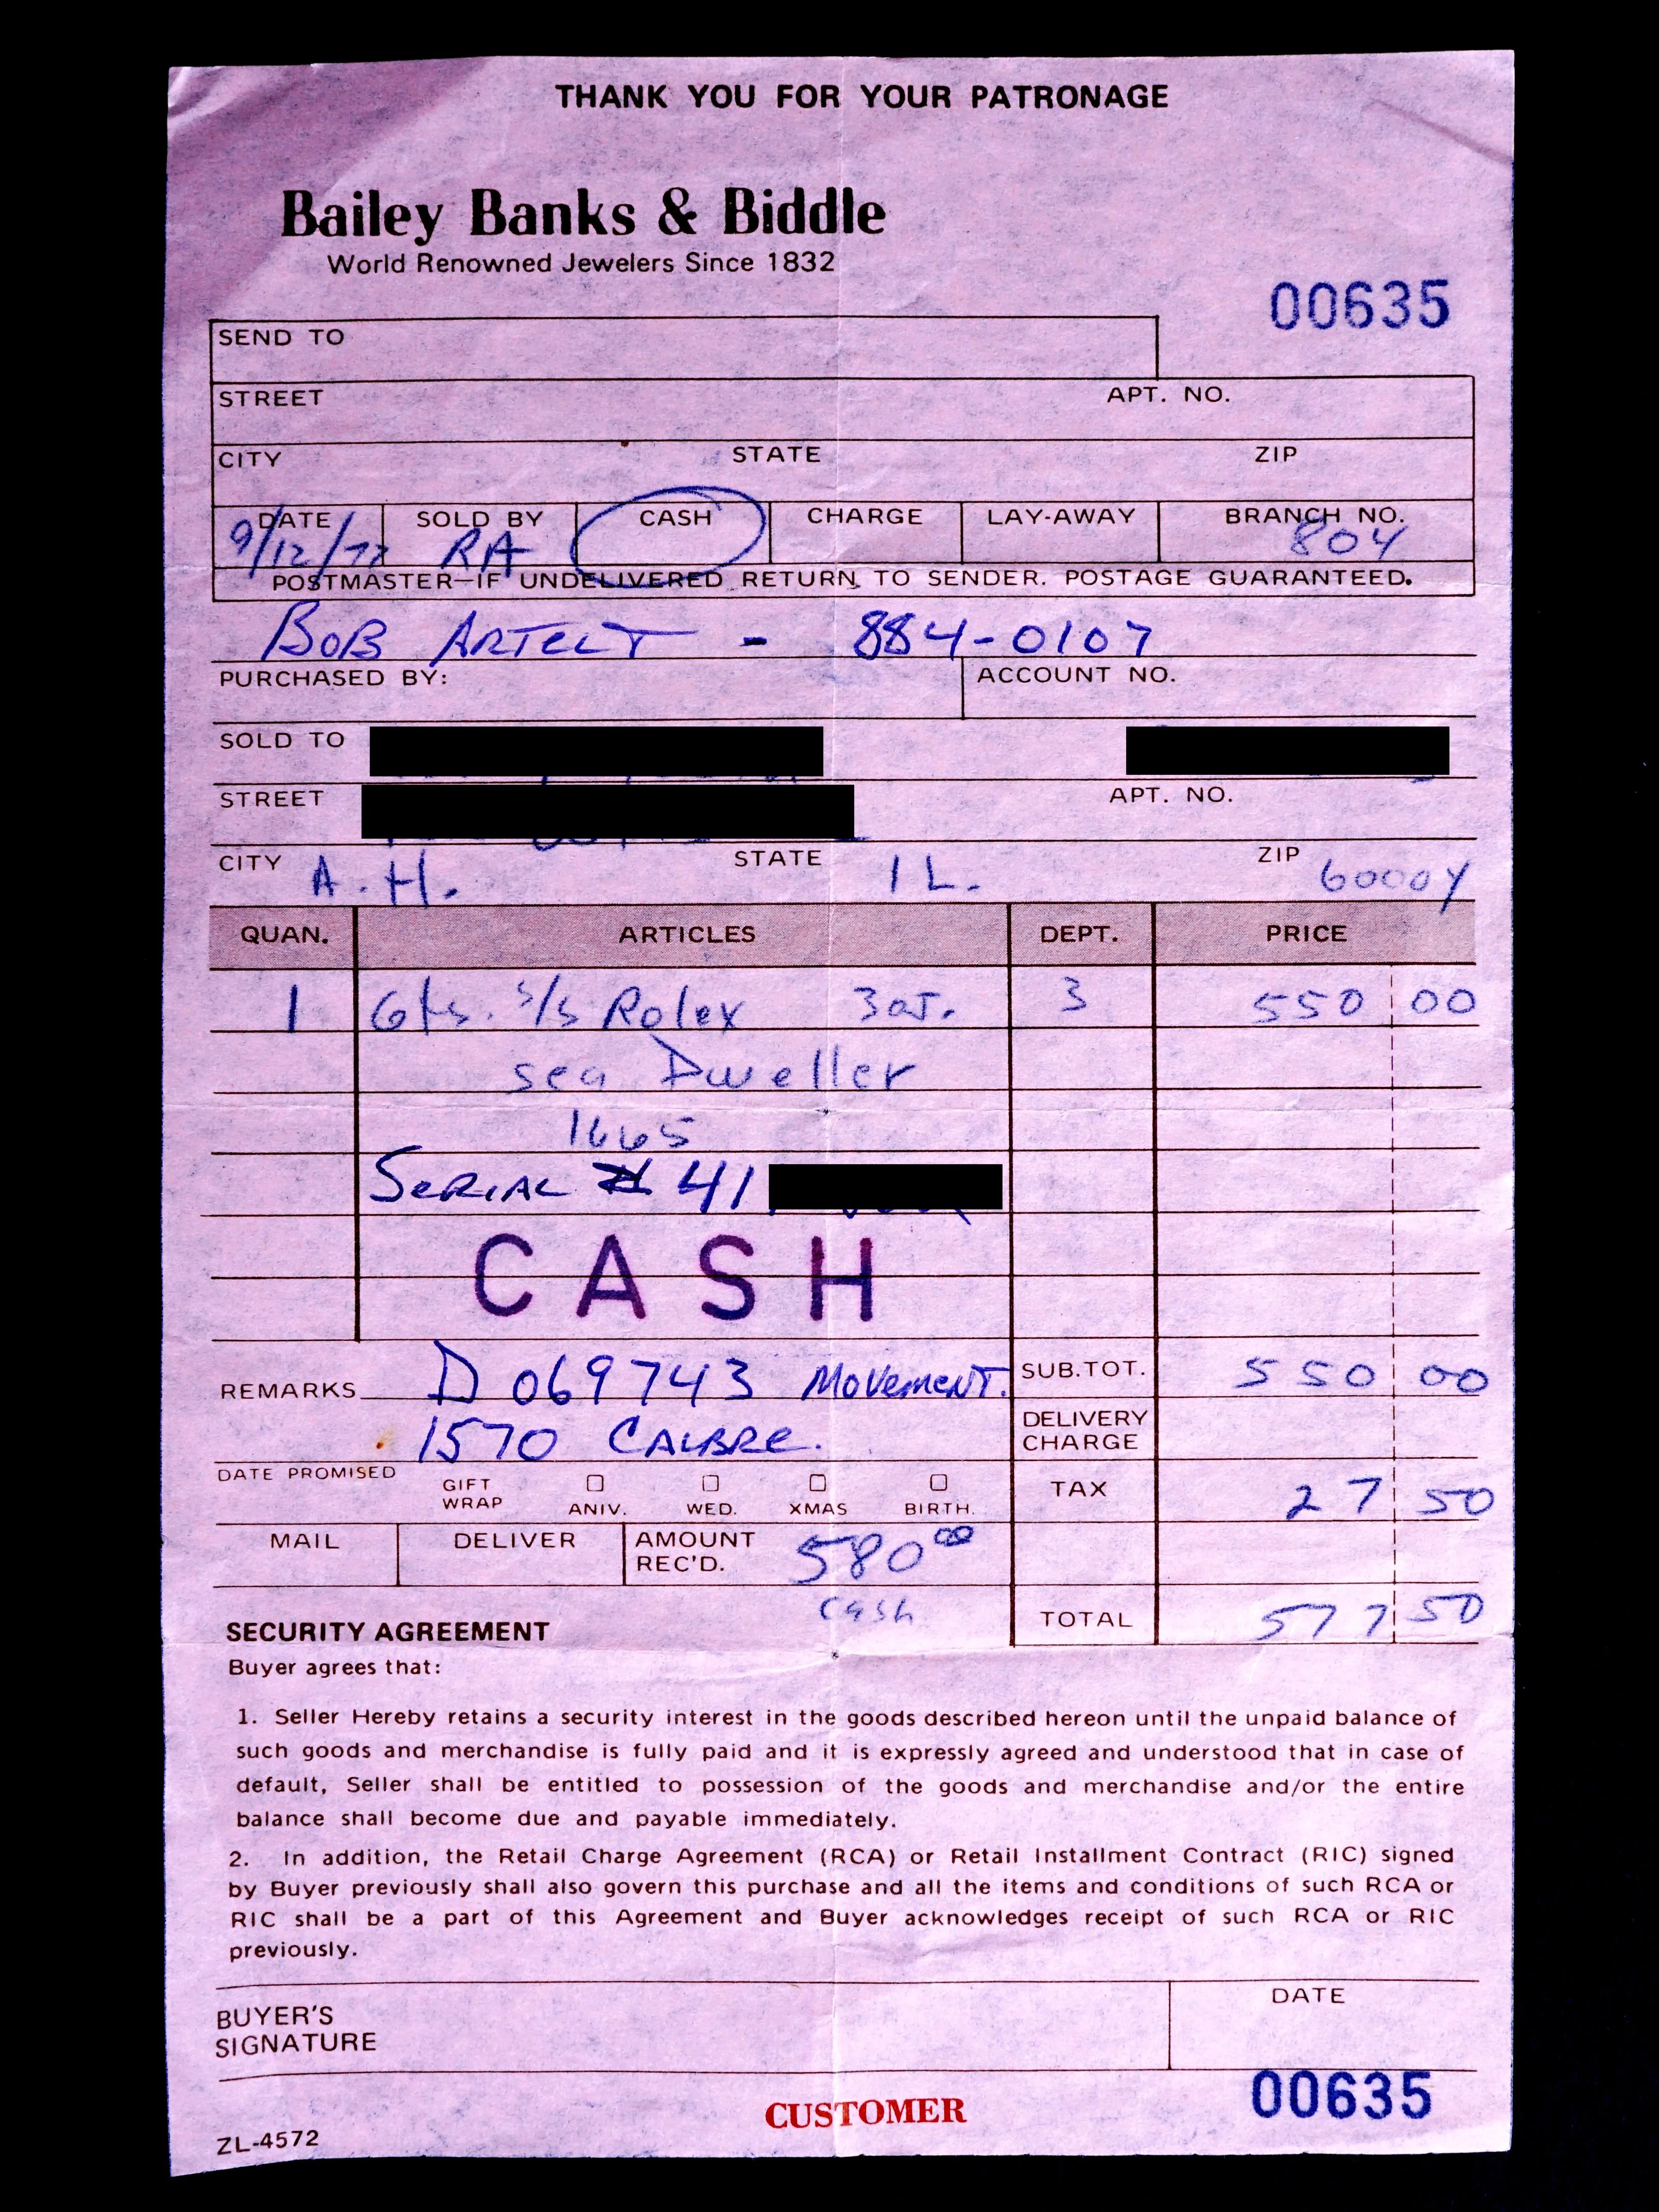 THANK YOU FOR YOUR PATRONAGE
Bailey Banks & Biddle
World Renowned Jewelers Since 1832
00635
SEND TO
STREET APT. NO.
CITY STATE ZIP
DATE SOLD BY CASH CHARGE LAY-AWAY BRANCH NO.
9/12/77 RA 804
POSTMASTER—IF UNDELIVERED RETURN TO SENDER. POSTAGE GUARANTEED.
BOB - 884-0107
PURCHASED BY: ACCOUNT NO.
SOLD TO
STREET APT. NO.
CITY A.H. STATE IL. ZIP 60004
QUAN. ARTICLES DEPT. PRICE
1 Gts. s/s Rolex 3 550 00
sea Dweller
1665
SERIAL # 41
CASH
REMARKS D069743 MOVEMENT. SUB.TOT. 550 00
1570 CALBRE. DELIVERY CHARGE
DATE PROMISED GIFT WRAP ANIV. WED. XMAS BIRTH. TAX 27 50
MAIL DELIVER AMOUNT REC'D. 580 00
cash TOTAL 577 50
SECURITY AGREEMENT
Buyer agrees that:
1. Seller Hereby retains a security interest in the goods described hereon until the unpaid balance of
such goods and merchandise is fully paid and it is expressly agreed and understood that in case of
default, Seller shall be entitled to possession of the goods and merchandise and/or the entire
balance shall become due and payable immediately.
2. In addition, the Retail Charge Agreement (RCA) or Retail Installment Contract (RIC) signed
by Buyer previously shall also govern this purchase and all the items and conditions of such RCA or
RIC shall be a part of this Agreement and Buyer acknowledges receipt of such RCA or RIC
previously.
BUYER'S SIGNATURE DATE
00635
CUSTOMER
ZL-4572